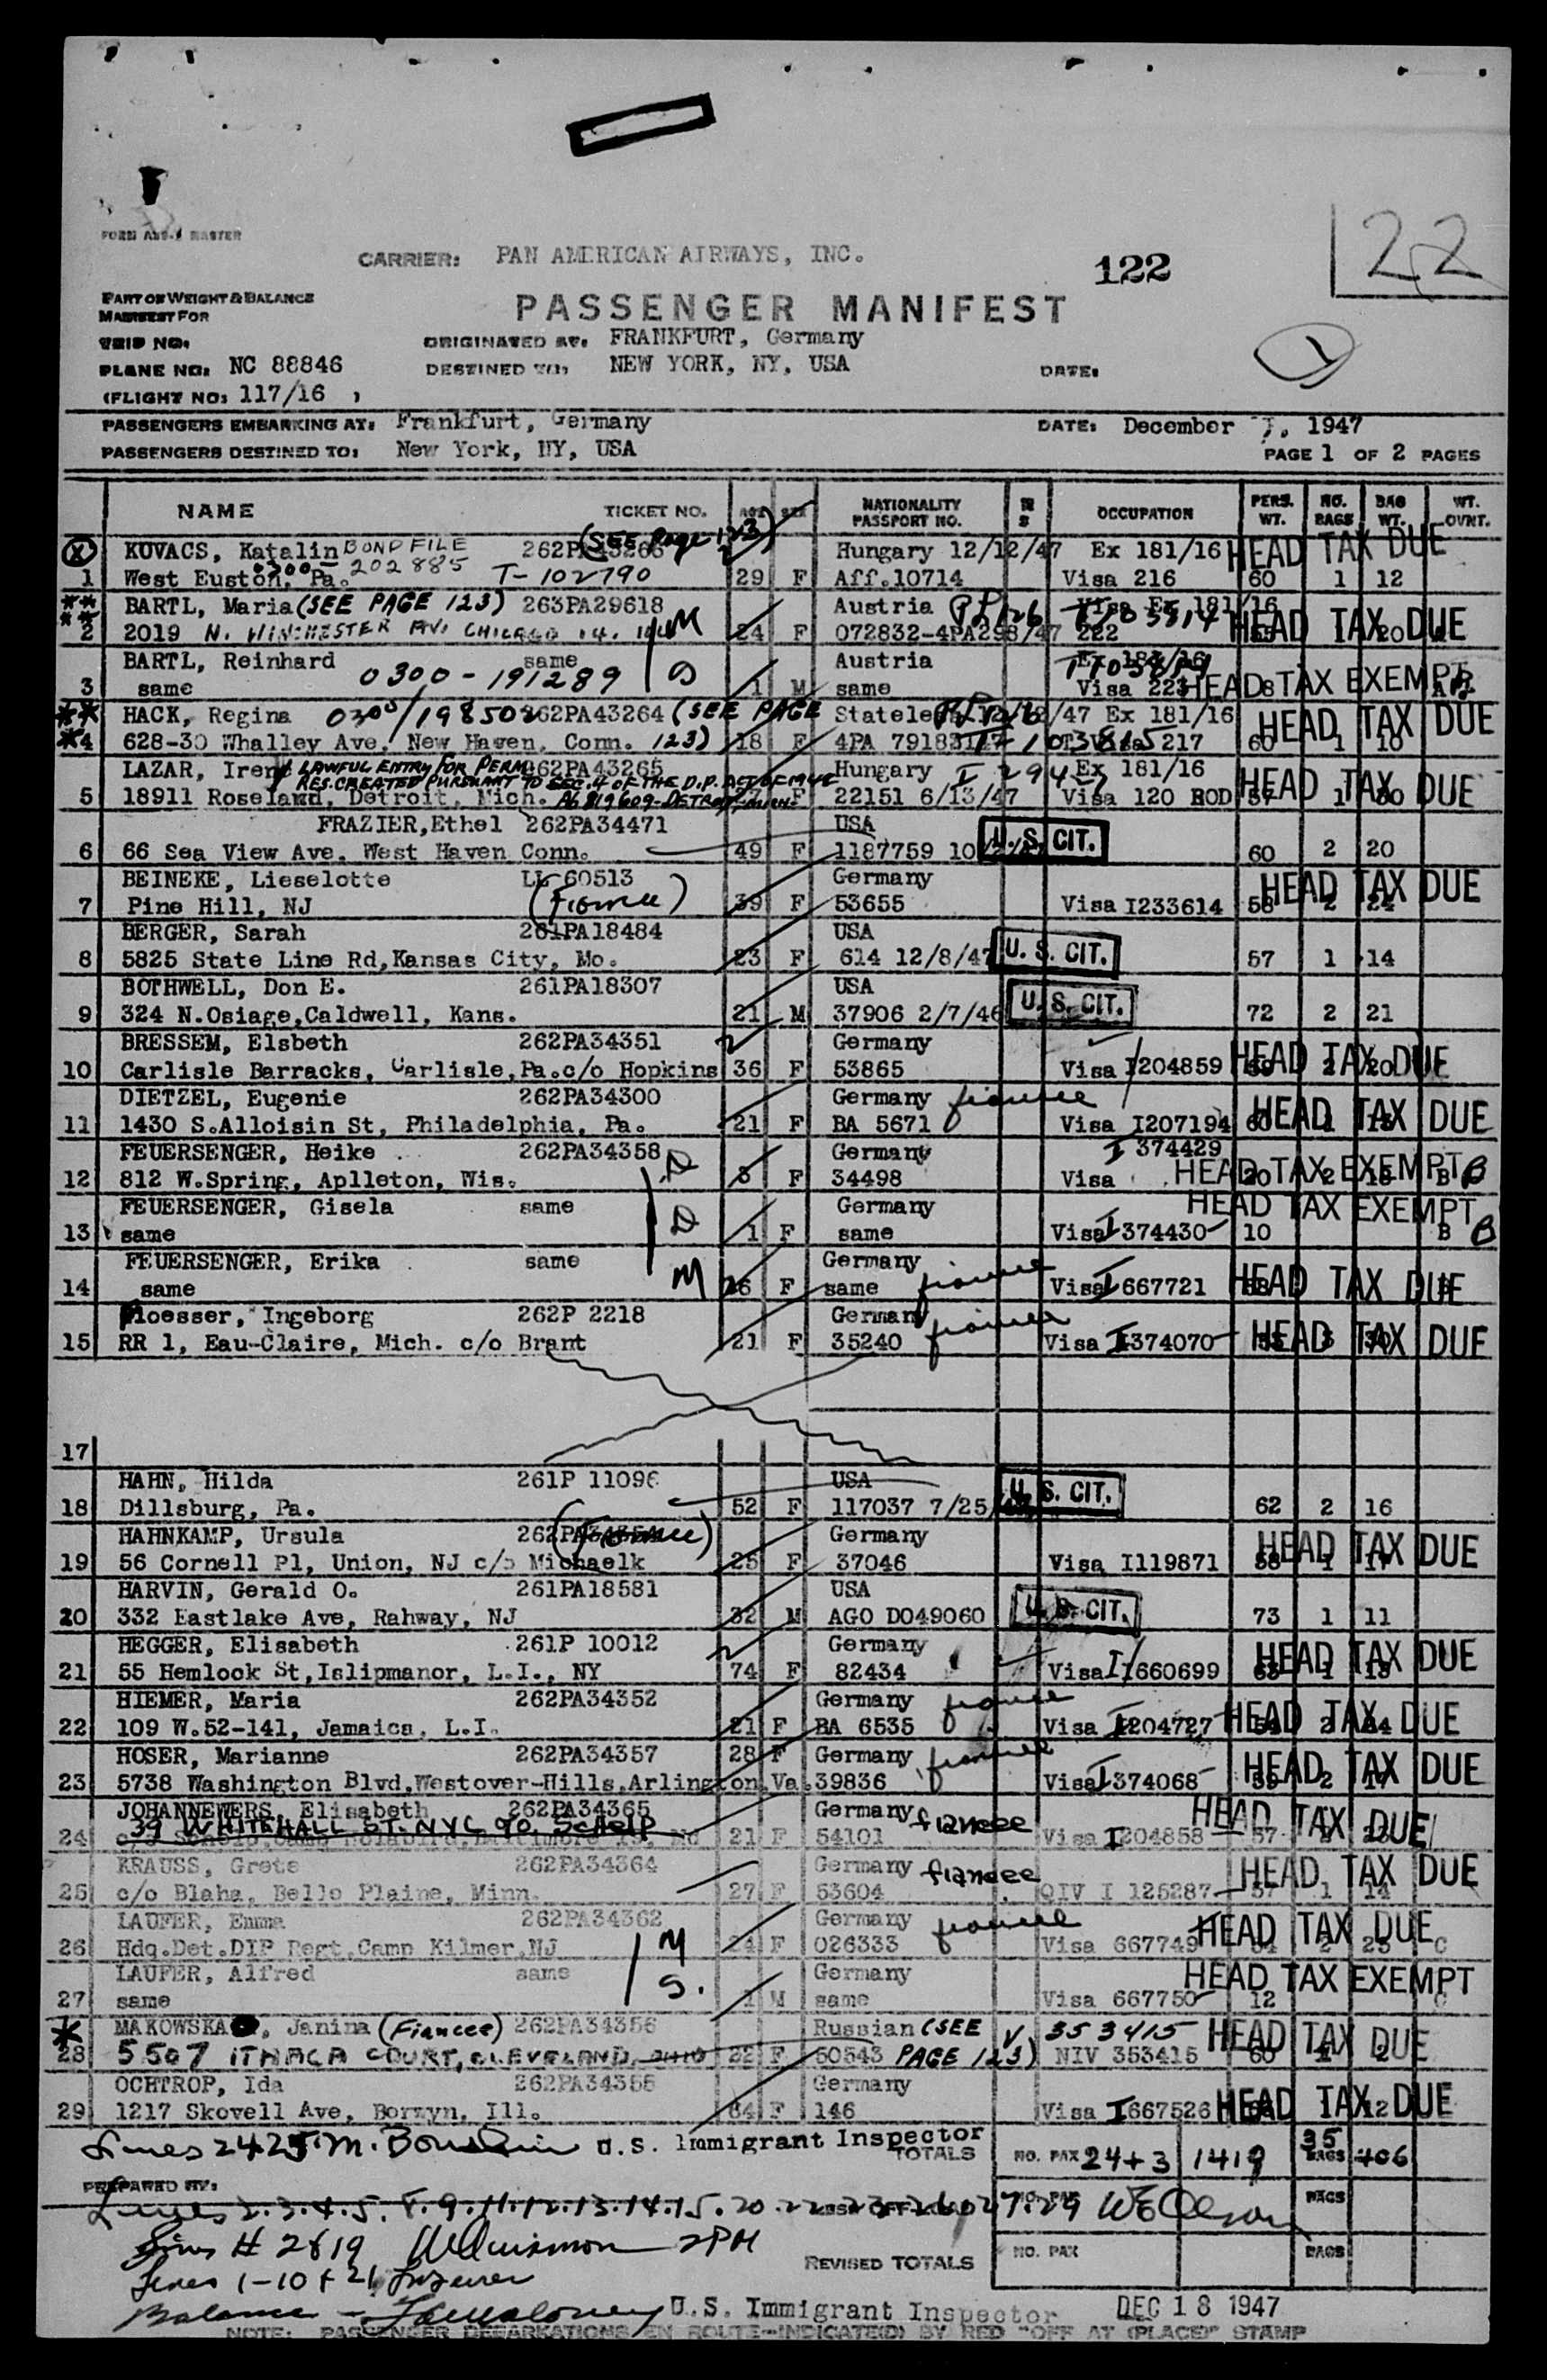 FORM ABS-1 MASTER
CARRIER: PAN AMERICAN AIRWAYS, INC.
122
22
PART OF WEIGHT & BALANCE
MANIFEST FOR
PASSENGER MANIFEST
TRIP NO.
ORIGINATED AT: FRANKFURT, Germany
PLANE NO: NC 88846
DESTINED TO: NEW YORK, NY, USA
DATE:
(FLIGHT NO: 117/16 )
PASSENGERS EMBARKING AT: Frankfurt, Germany
DATE: December , 1947
PASSENGERS DESTINED TO: New York, NY, USA
PAGE 1 OF 2 PAGES
NAME TICKET NO. AGE SEX NATIONALITY PASSPORT NO. OCCUPATION PERS. WT. NO. BAGS BAG WT. WT. OVNT.
(SEE Page 123)
KOVACS, Katalin BOND FILE 262PA43266 Hungary 12/12/47 Ex 181/16 HEAD TAX DUE
1 West Euston, Pa. 0300 202885 T-102790 29 F Aff.10714 Visa 216 60 1 12
** BARTL, Maria (SEE PAGE 123) 263PA29618 Austria Visa Ex 181/16
** 2 2019 N. WINCHESTER AV. CHICAGO 14. M 24 F 072832-4PA298/47 222 HEAD TAX DUE
BARTL, Reinhard same Austria Ex 181/16
3 same 0300-191289 1 M same Visa 223 8 HEAD TAX EXEMPT
** HACK, Regina 0300/198502 262PA43264 (SEE PAGE Stateless /47 Ex 181/16 HEAD TAX DUE
*4 628-30 Whalley Ave. New Haven, Conn. 123) 18 F 4PA 791831 Visa 217 60 1 10
LAZAR, Irene LAWFUL ENTRY FOR PERM. 262PA43265 Hungary Ex 181/16
RES. CREATED PURSUANT TO SEC. 4 OF THE D.P. ACT OF 1948
5 18911 Roseland, Detroit, Mich. A6819609-DETROIT, MICH. F 22151 6/13/47 Visa 120 ROD 57 1 HEAD TAX DUE
FRAZIER, Ethel 262PA34471 USA
6 66 Sea View Ave. West Haven Conn. 49 F 1187759 10 U.S. CIT. 60 2 20
BEINEKE, Lieselotte LL 60513 Germany HEAD TAX DUE
7 Pine Hill, NJ (Fiancee) 39 F 53655 Visa I233614 58 2 24
BERGER, Sarah 261PA18484 USA
8 5825 State Line Rd, Kansas City, Mo. 23 F 614 12/8/47 U.S. CIT. 57 1 14
BOTHWELL, Don E. 261PA18307 USA
9 324 N.Osiage, Caldwell, Kans. 21 M 37906 2/7/46 U.S. CIT. 72 2 21
BRESSEM, Elsbeth 262PA34351 Germany
10 Carlisle Barracks, Carlisle, Pa. c/o Hopkins 36 F 53865 Visa I204859 2 20 HEAD TAX DUE
DIETZEL, Eugenie 262PA34300 Germany fiancee
11 1430 S.Alloisin St, Philadelphia, Pa. 21 F BA 5671 Visa I207194 60 1 HEAD TAX DUE
FEUERSENGER, Heike 262PA34358 D Germany I 374429
12 812 W.Spring, Aplleton, Wis. 3 F 34498 Visa 20 2 HEAD TAX EXEMPT B
FEUERSENGER, Gisela same D Germany HEAD TAX EXEMPT
13 same 1 F same Visa I 374430 10 B B
FEUERSENGER, Erika same Germany fiancee
14 same M 26 F same Visa I 667721 HEAD TAX DUE
Floesser, Ingeborg 262P 2218 Germany fiancee
15 RR 1, Eau-Claire, Mich. c/o Brant 21 F 35240 Visa I 374070 HEAD TAX DUE
17
HAHN, Hilda 261P 11096 USA
18 Dillsburg, Pa. 52 F 117037 7/25 U.S. CIT. 62 2 16
HAHNKAMP, Ursula 262PA34354 (Fiancee) Germany
19 56 Cornell Pl, Union, NJ c/o Michaelk 25 F 37046 Visa I119871 58 1 17 HEAD TAX DUE
HARVIN, Gerald O. 261PA18581 USA
20 332 Eastlake Ave, Rahway, NJ 32 M AGO D049060 U.S. CIT. 73 1 11
HEGGER, Elisabeth 261P 10012 Germany
21 55 Hemlock St, Islipmanor, L.I., NY 74 F 82434 Visa I/660699 63 1 HEAD TAX DUE
HIEMER, Maria 262PA34352 Germany fiancee
22 109 W.52-141, Jamaica, L.I. 21 F BA 6535 Visa I204727 2 HEAD TAX DUE
HOSER, Marianne 262PA34357 28 F Germany fiancee
23 5738 Washington Blvd, Westover-Hills, Arlington, Va. 39836 Visa I 374068 59 2 17 HEAD TAX DUE
JOHANNEWERS, Elisabeth 262PA34365 Germany fiancee
39 WHITEHALL ST. NYC c/o SCHELP
24 21 F 54101 Visa I204858 57 HEAD TAX DUE
KRAUSS, Grete 262PA34364 Germany fiancee
25 c/o Blaha, Belle Plaine, Minn. 27 F 53604 QIV I 125287 57 1 14 HEAD TAX DUE
LAUFER, Emma 262PA34362 Germany fiancee
26 Hdq.Det.DIP Regt, Camp Kilmer, NJ M 24 F 026333 Visa 667749 2 25 C HEAD TAX DUE
LAUFER, Alfred same Germany HEAD TAX EXEMPT
27 same S. 1 M same Visa 667750 12 C
MAKOWSKA, Janina (Fiancee) 262PA34356 Russian (SEE V 353415 HEAD TAX DUE
* 28 5507 ITHACA COURT, CLEVELAND, OHIO 22 F 50543 PAGE 123) NIV 353415 60 1
OCHTROP, Ida 262PA34355 Germany
29 1217 Skovell Ave, Borwyn, Ill. 64 F 146 Visa I667526 12 HEAD TAX DUE
Lines 24 25 M. U.S. Immigrant Inspector
TOTALS NO. PAX 24+3 1419 35 BAGS 406
PREPARED BY:
Lines 2.3.4.5. 8.9.11.12.13.14.15.20.22 27.29 NO. PAX BAGS
Lines # 28 19 2PM
REVISED TOTALS NO. PAX BAGS
Lines 1-10 + 21
Balance - U.S. Immigrant Inspector DEC 18 1947
NOTE: PASSENGER DEBARKATIONS EN ROUTE-INDICATE(D) BY RED "OFF AT (PLACE)" STAMP